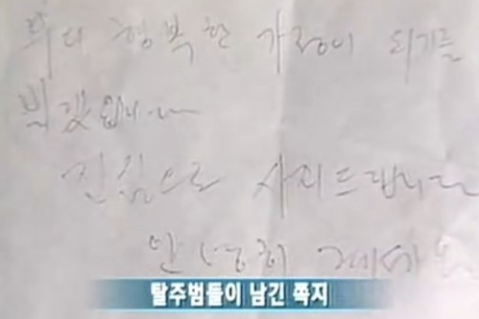 부디 행복한 가정이 되기를
빌겠읍니다
진심으로 사죄드립니다
안녕히 계세요
탈주범들이 남긴 쪽지